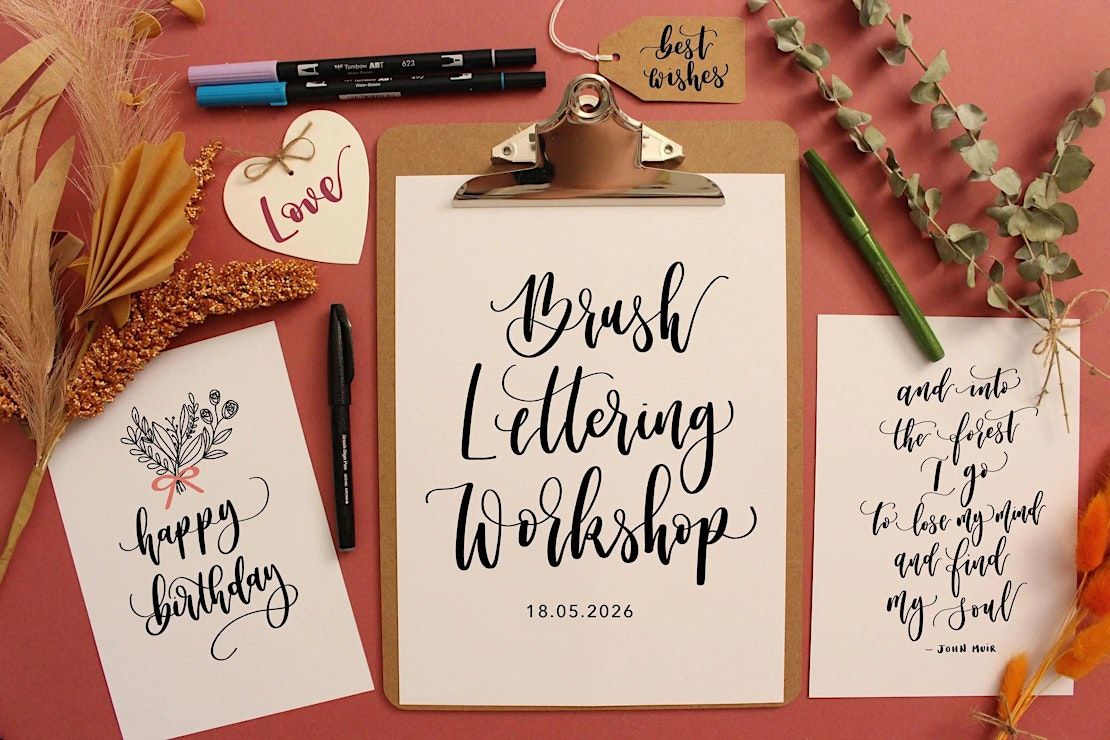 best
wishes
Tombow ABT 623
Love
Brush
Lettering
Workshop
18.05.2026
happy
birthday
and into
the forest
I go
to lose my mind
and find
my soul
– JOHN MUIR